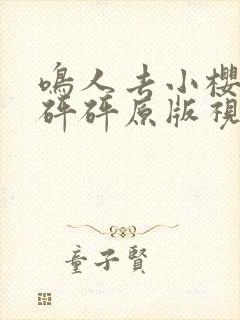 鳴人去小櫻
砰砰原版視
童子賢